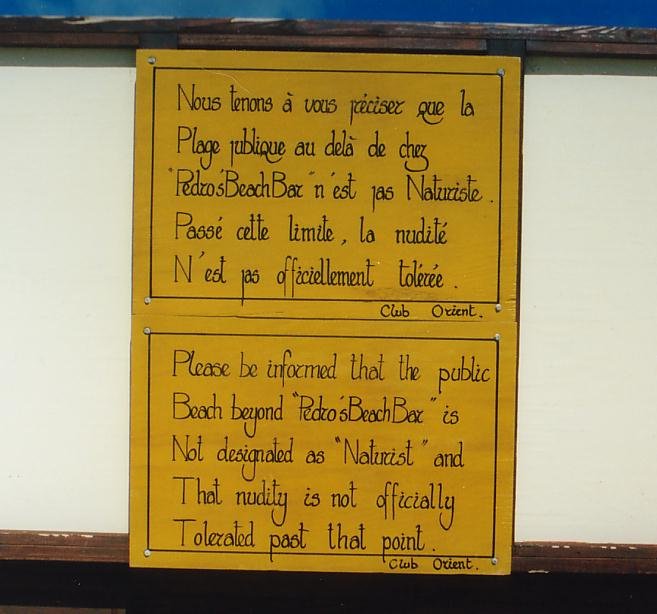 Nous tenons à vous préciser que la
Plage publique au delà de chez
"Pedro's Beach Bar" n'est pas Naturiste.
Passé cette limite, la nudité
N'est pas officiellement tolérée.
Club Orient.
Please be informed that the public
Beach beyond "Pedro's Beach Bar" is
Not designated as "Naturist" and
That nudity is not officially
Tolerated past that point.
Club Orient.